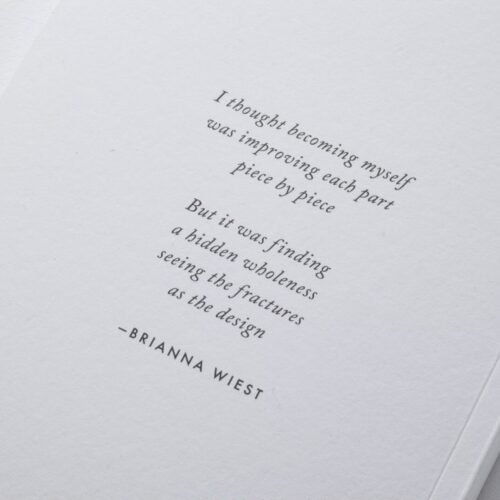 I thought becoming myself
was improving each part
piece by piece
But it was finding
a hidden wholeness
seeing the fractures
as the design
–BRIANNA WIEST